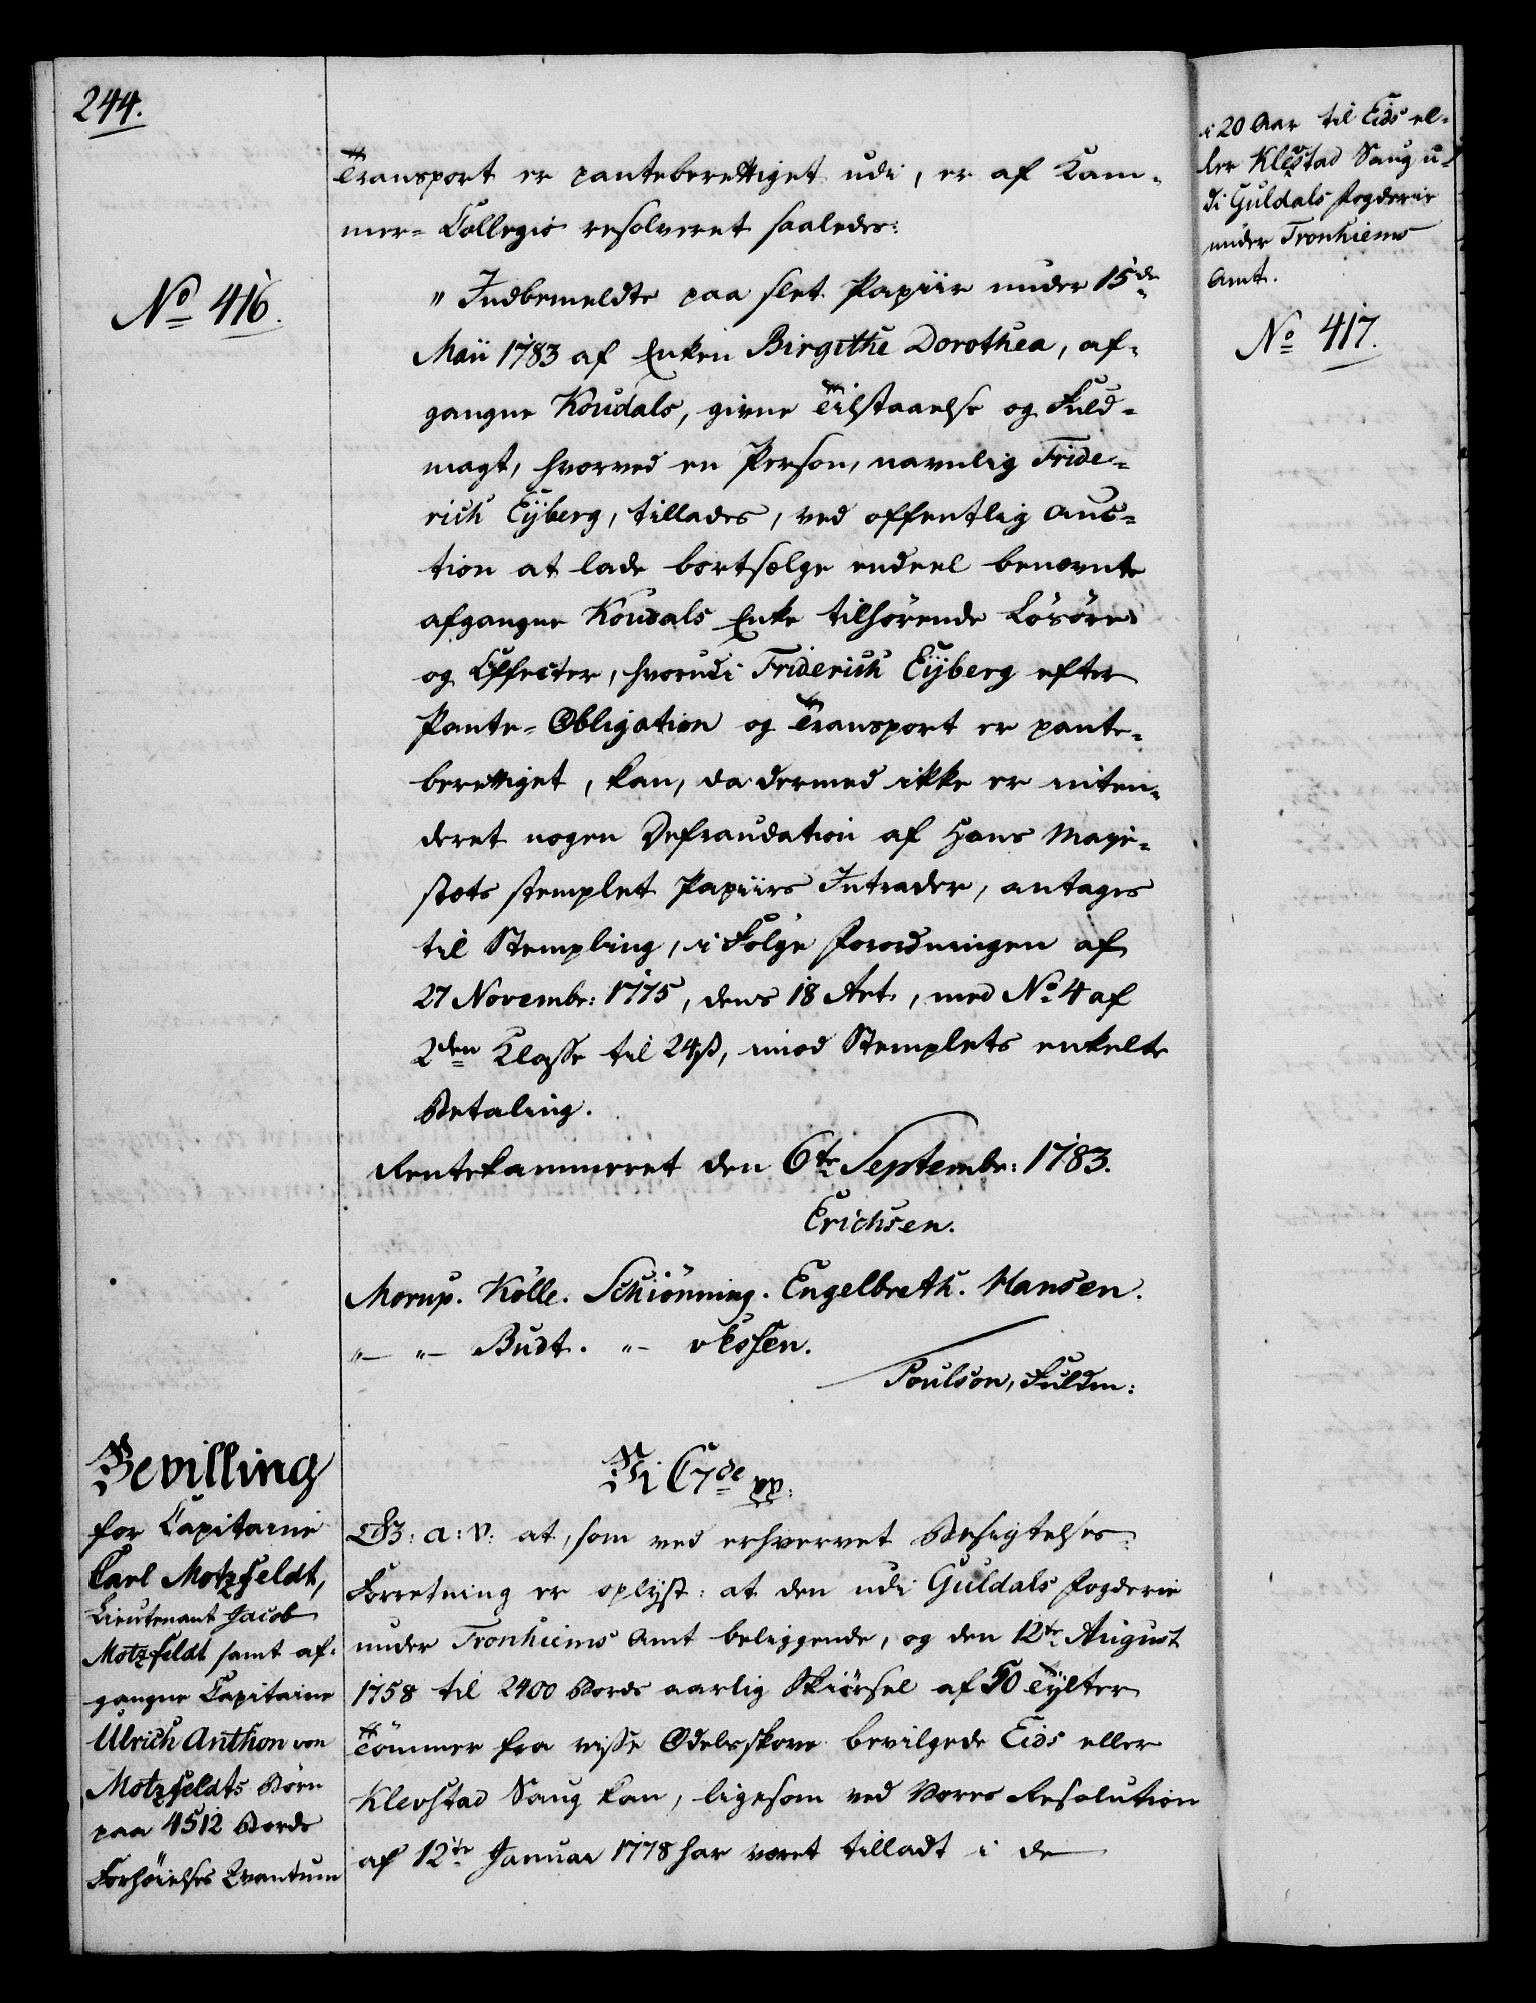 244.
Transport er panteberettiget udi, er af Kam-
mer-Collegio resolveret saaledes:
No 416.
" Indbemeldte paa slet Papiir under 15de
Maii 1783 af Enken Birgithe Dorothea, af-
gangne Koudals, givne Tilstaaelse og Fuld-
magt, hvorved en Person, navnlig Fride-
rich Eÿberg, tillades, ved offentlig Auc-
tion at lade bortsælge endeel benævnte
afgangne Koudals Enke tilhörende Lösöre
og Effecter, hvorudi Friderich Eÿberg efter
Pante-Obligation og Transport er pante-
berettiget, kan, da dermed ikke er inten-
deret nogen Defraudation af Hans Maje-
stæts stemplet Papiirs Intrader, antages
til Stempling, i Fölge Forordningen af
27 Novembr: 1775, dens 18 Art., med No 4 af
2den Klasse til 24 ß, imod Stemplets enkelte
Betaling.
Rentekammeret den 6te Septembr: 1783.
Erichsen.
Morup. Kölle. Schiönning. Engelbreth. Hansen.
"- "- Budt. "- v Essen.
Poulson, Fuldm:
Bevilling
for Capitaine
Carl Motzfeldt,
Lieutenant Jacob
Motzfeldt samt af-
gangne Capitaine
Ulrich Anthon von
Motzfeldts Börn
paa 4512 Bords
Forhöielses Qvantum
Vi C7de pp:
G: a: V: at, som ved erhvervet Besigtelses-
Forretning er oplÿst: at den udi Guldals Fogderie
under Tronhiems Amt beliggende, og den 12te August
1758 til 2400 Bords aarlig Skiörsel af 50 Tÿlter
Tömmer fra visse Odelsskove bevilgede Eids eller
Klevstad Saug kan, ligesom ved Vores Resolution
af 12te Januar 1778 har været tilladt i de
i 20 Aar til Eids el-
ler Klevstad Saug u-
di Guldals Fogderie
under Tronhiems
Amt.
No 417.